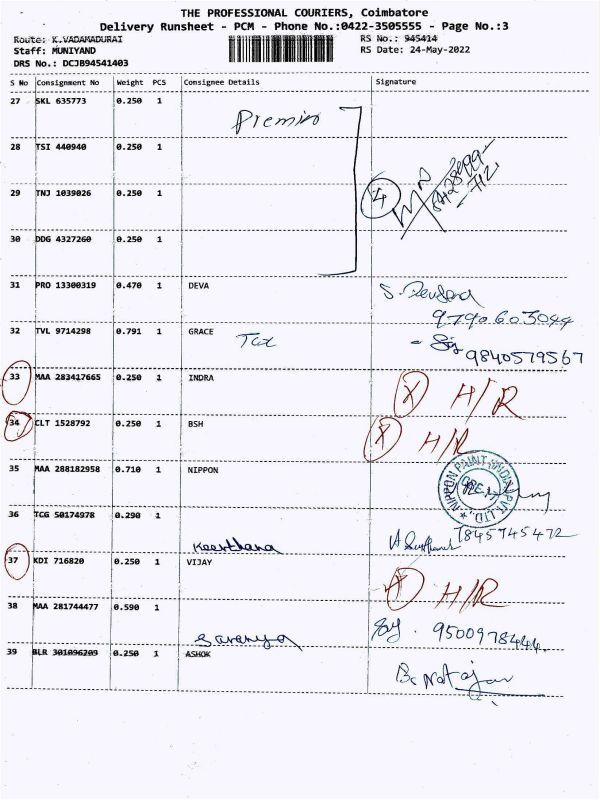 THE PROFESSIONAL COURIERS, Coimbatore
Delivery Runsheet - PCM - Phone No.:0422-3505555 - Page No.:3
Route: K.VADAMADURAI RS No.: 945414
Staff: MUNIYAND RS Date: 24-May-2022
DRS No.: DCJB94541403
S No Consignment No Weight PCS Consignee Details Signature
27 SKL 635773 0.250 1
Premier
28 TSI 440940 0.250 1
29 TNJ 1039026 0.250 1
4
30 DDG 4327260 0.250 1
31 PRO 13300319 0.470 1 DEVA
9790603044
32 TVL 9714298 0.791 1 GRACE
9840579567
33 MAA 283417665 0.250 1 INDRA X H/R
34 CLT 1528792 0.250 1 BSH X H/R
35 MAA 288182958 0.710 1 NIPPON
NIPPON PAINT (INDIA) PVT. LTD.
36 TCG 50174978 0.290 1
Keerthana 7845745472
37 KDI 716820 0.250 1 VIJAY X H/R
38 MAA 281744477 0.590 1
Saranya 9500978444
39 BLR 301096209 0.250 1 ASHOK